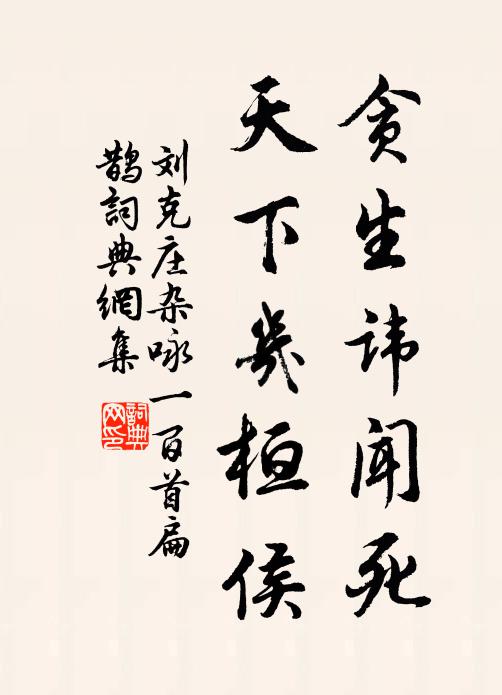 贪生讳闻死
天下几桓侯
刘克庄杂咏一百首扁
鹊词典网集
詞典网印